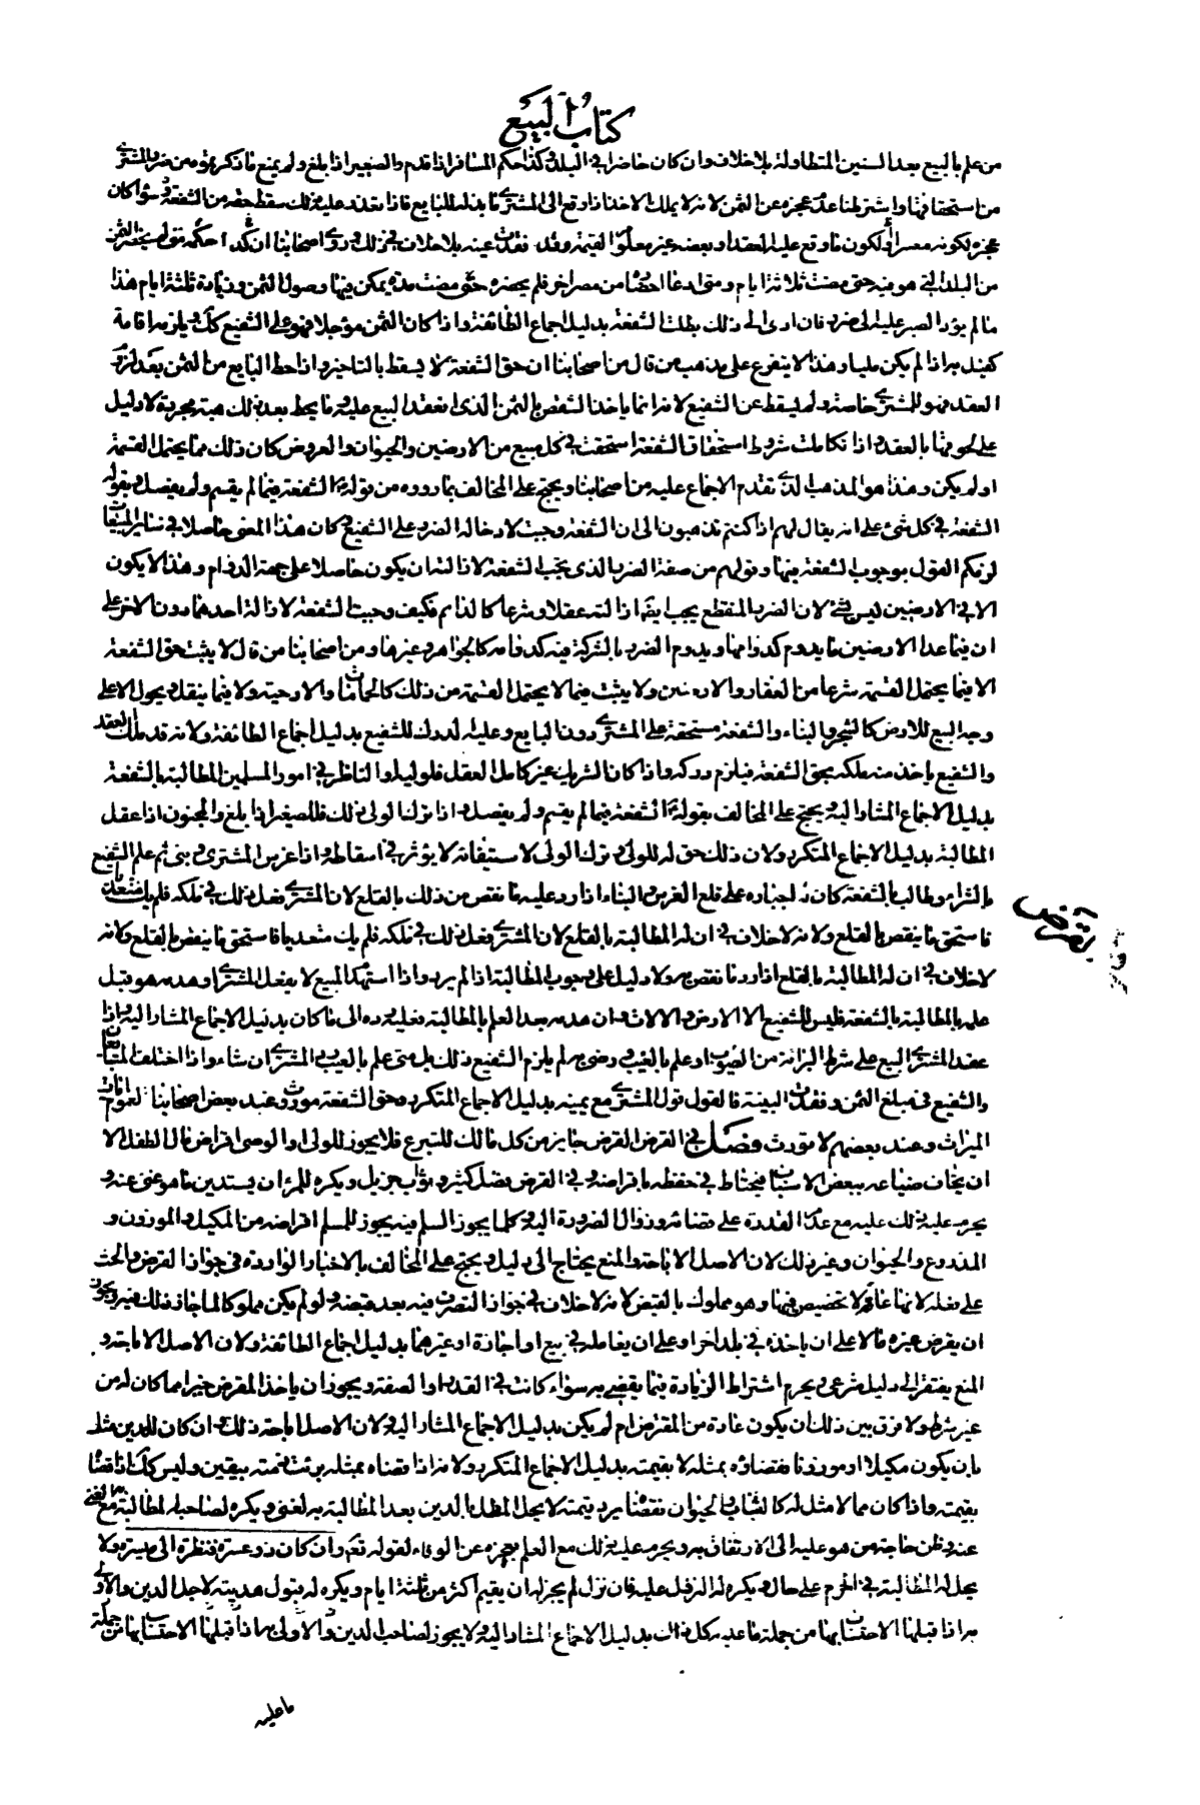 كتاب البيع
من علم بالبيع بعد السنين المتطاولة بلا خلاف وان كان حاضرا في البلد وكذا حكم المسافر اذا قدم والصغير اذا بلغ ولم يمنع ما ذكرتموه من ضرر المشتري
من استحقاقها واشترطنا عدم عجزه عن الثمن لانه لا يملك الاخذ اذا دفع الى المشتري ما بذله للبايع فاذا تعذر عليه ذلك سقط حقه من الشفعة وسواء كان
عجزه لكونه معسرا او لكون ما وقع عليه العقد او بعضه غير معلوم القيمة وقد فقدت عينه بلا خلاف في ذلك وروى اصحابنا ان حكمه متى لم يحضر الثمن
من البلد الذي هو فيه حتى مضت ثلاثة ايام ومتى ادعا احضاره من مصر اخر فلم يحضره حتى مضت مدة يمكن فيها وصول الثمن وزيادة ثلثة ايام هذا
ما لم يؤد الصبر عليه الى ضرر فان ادى الى ذلك بطلت الشفعة بدليل اجماع الطائفة واذا كان الثمن مؤجلا فهو على الشفيع كذلك ويلزمه اقامة
كفيل به اذا لم يكن مليا وهذا لا يتفرع على مذهب من قال من اصحابنا ان حق الشفعة لا يسقط بالتاخير واذا حط البايع من الثمن بعد لزوم
العقد فهو للمشتري خاصة ولم يسقط عن الشفيع لانه انما ياخذ الشقص بالثمن الذي انعقد البيع عليه وما يحط بعد ذلك هبة مجددة لا دليل
على لحوقها بالعقد واذا تكاملت شروط استحقاق الشفعة استحقت في كل مبيع من الارضين والحيوان والعروض كان ذلك مما يحتمل القسمة
او لم يكن وهذا هو المذهب الذي تقدم الاجماع عليه من اصحابنا ويحتج على المخالف بما رووه من قوله الشفعة فيما لم يقسم ولم يفصل وبقوله
الشفعة في كل شئ على انه يقال لهم اذا كنتم تذهبون الى ان الشفعة وجبت لازالة الضرر على الشفيع وكان هذا المعنى حاصلا في سائر المبيعات
لزمكم القول بوجوب الشفعة فيها وقولهم من صفة الضرر الذي يجب الشفعة لازالته ان يكون حاصلا على جهة الدوام وهذا لا يكون
الا في الارضين ليس بشئ لان الضرر المنقطع يجب ايضا ازالته عقلا وشرعا كالدائم فكيف وجبت الشفعة لازالة احدهما دون الاخر على
ان فيما عدا الارضين ما يدوم كدوامها ويدوم الضرر بالشركة فيه كدوامه كالجواهر وغيرها ومن اصحابنا من قال لا يثبت حق الشفعة
الا فيما يحتمل القسمة شرعا من العقار والارضين ولا يثبت فيما لا يحتمل القسمة من ذلك كالحمامات والارحية ولا فيما ينقل ويحول الا على
وجه البيع للارض كالشجر والبناء والشفعة مستحقة على المشتري دون البايع وعليه الدرك للشفيع بدليل اجماع الطائفة ولانه قد ملك العقد
والشفيع ياخذ منه ملكه بحق الشفعة فيلزم دركه واذا كان الشريك غير كامل العقل فلوليه او الناظر في امور المسلمين المطالبة بالشفعة
بدليل الاجماع المشار اليه ويحتج على المخالف بقوله الشفعة فيما لم يقسم ولم يفصل واذا ترك الولي ذلك فللصغير اذا بلغ والمجنون اذا عقل
المطالبة بدليل الاجماع المتكرر ولان ذلك حق له لا للولي وترك الولي لاستيفائه لا يؤثر في اسقاطه واذا غرس المشتري وبنى ثم علم الشفيع
بالشراء وطالب بالشفعة كان له اجباره على قلع الغرس والبناء اذا رد عليه ما نقص من ذلك بالقلع لان المشتري فعل ذلك في ملكه فلم يك متعديا
فاستحق ما ينقص بالقلع ولانه لا خلاف في ان له المطالبة بالقلع لان المشتري فعل ذلك في ملكه فلم يك متعديا فاستحق ما ينقص بالقلع ولانه
لا خلاف في ان له المطالبة بالقلع اذا رد ما نقص به ولا دليل على وجوب المطالبة اذا لم يرد واذا استهدم المبيع لا بفعل المشتري او هدمه هو قبل
علمه بالمطالبة بالشفعة فليس للشفيع الا الارض والالات وان هدمه بعد العلم بالمطالبة فعليه رده الى ما كان بدليل الاجماع المشار اليه واذا
عقد المشتري البيع على شرط البرائة من العيوب او علم بالعيب ورضى به لم يلزم الشفيع ذلك بل متى علم بالعيب رد على المشتري ان شاء واذا اختلف المتبايعان
والشفيع في مبلغ الثمن وفقدت البينة فالقول قول المشتري مع يمينه بدليل الاجماع المتكرر وحق الشفعة موروث عند بعض اصحابنا لعموم ايات
الميراث وعند بعضهم لا يورث فصل في القرض القرض جايز من كل مالك للتبرع فلا يجوز للولي او الوصي اقراض مال الطفل الا
ان يخاف ضياعه ببعض الاسباب فيحتاط في حفظه باقراضه وفي القرض فضل كثير وثواب جزيل ويكره للمرء ان يستدين ما هو غني عنه و
يحرم عليه ذلك عليه مع عدم القدرة على قضائه وزوال الضرورة اليه وكلما يجوز السلم فيه يجوز للمسلم اقراضه من المكيل والموزون و
المذروع والحيوان وغير ذلك لان الاصل الاباحة والمنع يحتاج الى دليل ويحتج على المخالف بالاخبار الواردة في جواز القرض والحث
على فعله لانها عامة لا تخصيص فيها وهو مملوك بالقبض لانه لا خلاف في جواز التصرف فيه بعد قبضه ولو لم يكن مملوكا لما جاز ذلك فيه ويجوز
ان يقرض غيره مالا على ان ياخذه في بلد اخر او على ان يعامله في بيع او اجازة او غيرهما بدليل اجماع الطائفة ولان الاصل الاباحة و
المنع يفتقر الى دليل شرعي ويحرم اشتراط الزيادة فيما يقضي به سواء كانت في القدر او الصفة ويجوز ان ياخذ المقرض خيرا مما كان له من
غير شرط ولا فرق بين ذلك ان يكون عادة من المقترض ام لم يكن بدليل الاجماع المشار اليه ولان الاصل اباحة ذلك وان كان للدين مثل
بان يكون مكيلا او موزونا فقضاؤه بمثله لا بقيمته بدليل الاجماع المتكرر ولانه اذا قضاه بمثله برئت ذمته بيقين وليس كذلك اذا قضاه
بقيمته واذا كان مما لا مثل له كالثياب والحيوان فقضاؤه برد قيمته لا يحل المطل بالدين بعد المطالبة به لغني ويكره لصاحبه المطالبة به مع الغنى
عنه وظن حاجة من هو عليه الى الارتفاق به ويحرم عليه ذلك مع العلم بعجزه عن الوفاء لقوله تعم وان كان ذو عسرة فنظرة الى ميسرة ولا
يحل له المطالبة في الحرم على حال ويكره له النزول عليه فان نزل لم يجز له ان يقيم اكثر من ثلثة ايام ويكره له قبول هديته لاجل الدين والاولى
به اذا قبلها الاحتساب بها من جملة ما عليه كل ذلك بدليل الاجماع المشار اليه ولا يجوز لصاحب الدين والاولى به اذا قبلها الاحتساب بها من جملة
ما عليه
القرض